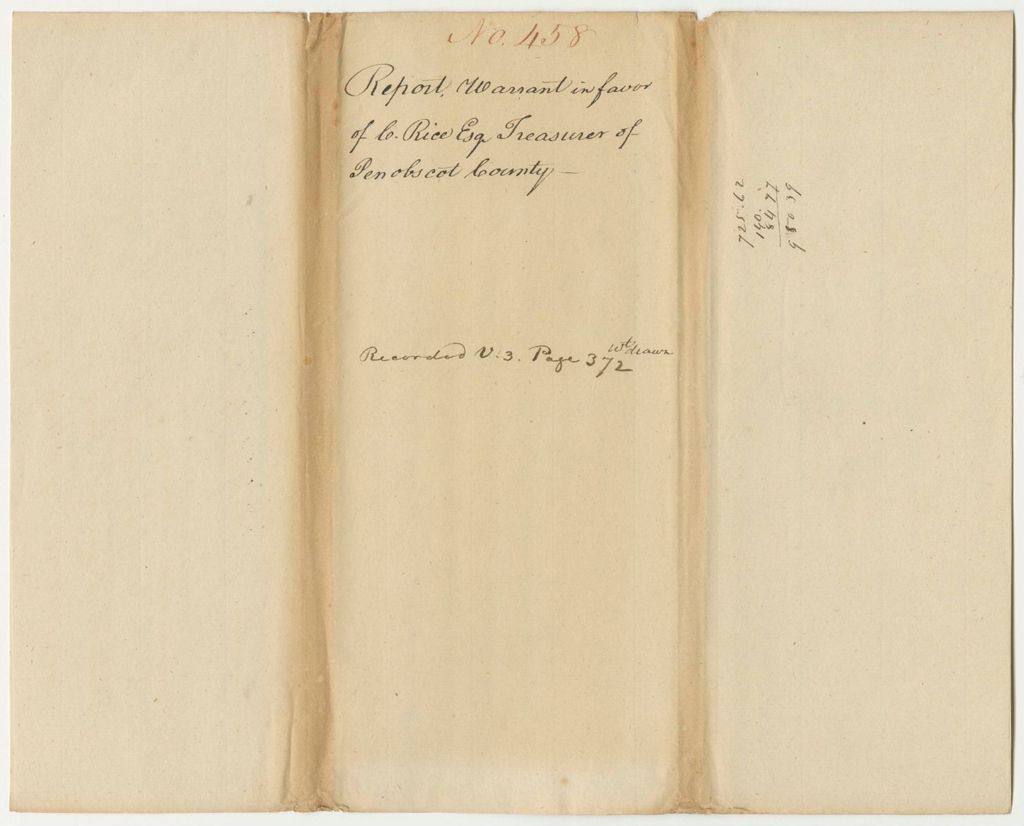 No. 458
Report, Warrant in favor
of C. Rice Esq Treasurer of
Penobscot County —
Recorded V. 3. Page 372
wt drawn